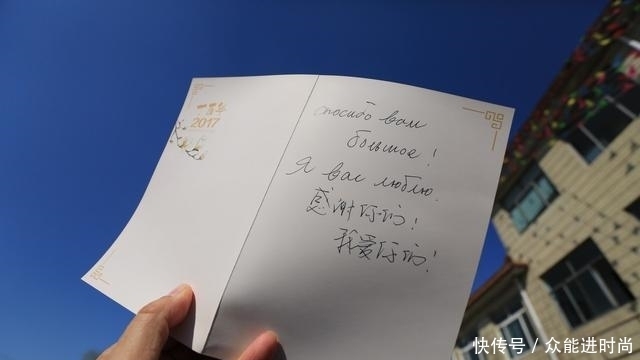 2017
спасибо вам
большое!
Я вас люблю.
感谢你们!
我爱你们!
快传号 / 众能进时尚